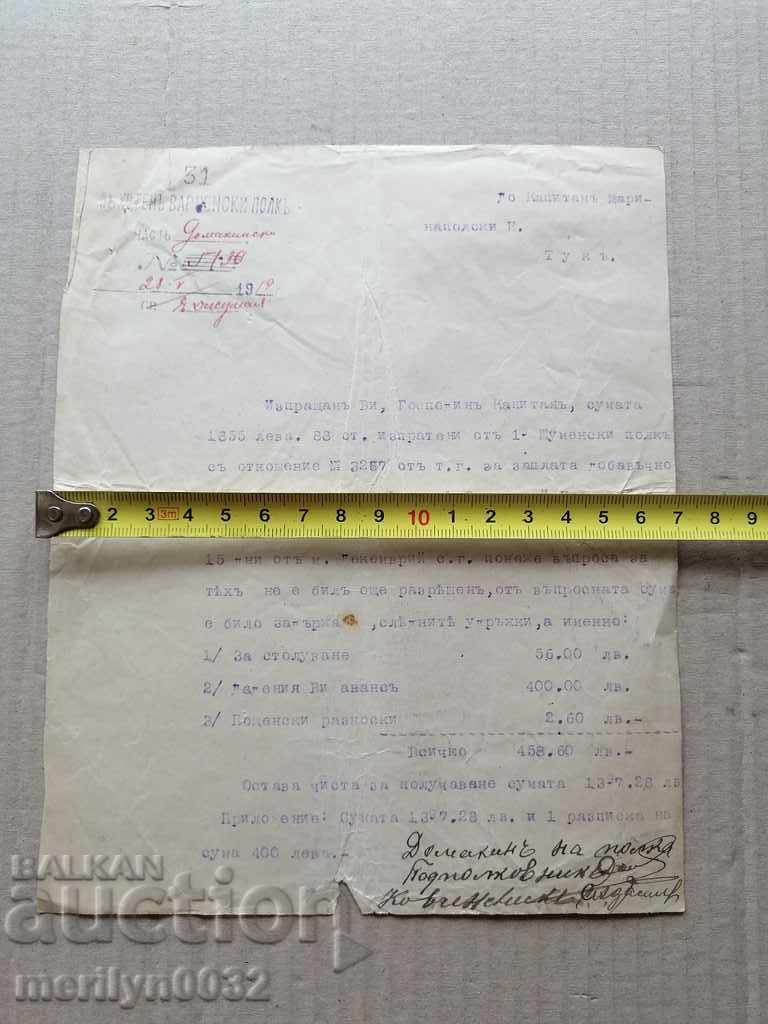 31
ПОЛКЪ
ЧАСТЬ Домакинска
№
28 V 1919
гр.
До Капитанъ Шари-
наполски П.
Тукъ.
Изпращамъ Ви, Господинъ Капитанъ, сумата
88 ст. изпратени отъ 1- Шуменски полкъ
съ отношение № 3257 отъ т.г. за заплата добавъчно
2 3 3m 4 5 6 7 8 9 10 1 2 3 4 5 6 7 8 9
15 дни отъ м. Декемврий с.г. понеже въпроса за
тѣхъ не е билъ още разрѣшенъ, отъ въпросната
е било ,слѣднитѣ удръжки, а именно:
1/ За столуване 56.00 лв.
2/ Дадения Ви авансъ 400.00 лв.
3/ Пощенски разноски 2.60 лв.-
Всичко 458.60 лв.-
Остава чиста за получаване сумата 13-7.28 лв
Приложение: Сумата 13-7.28 лв. и 1 разписка на
сума 400 лева.-
Домакинъ на полка
Подполковникъ
Ковчежникъ
BALKAN
auction
merilyn0032